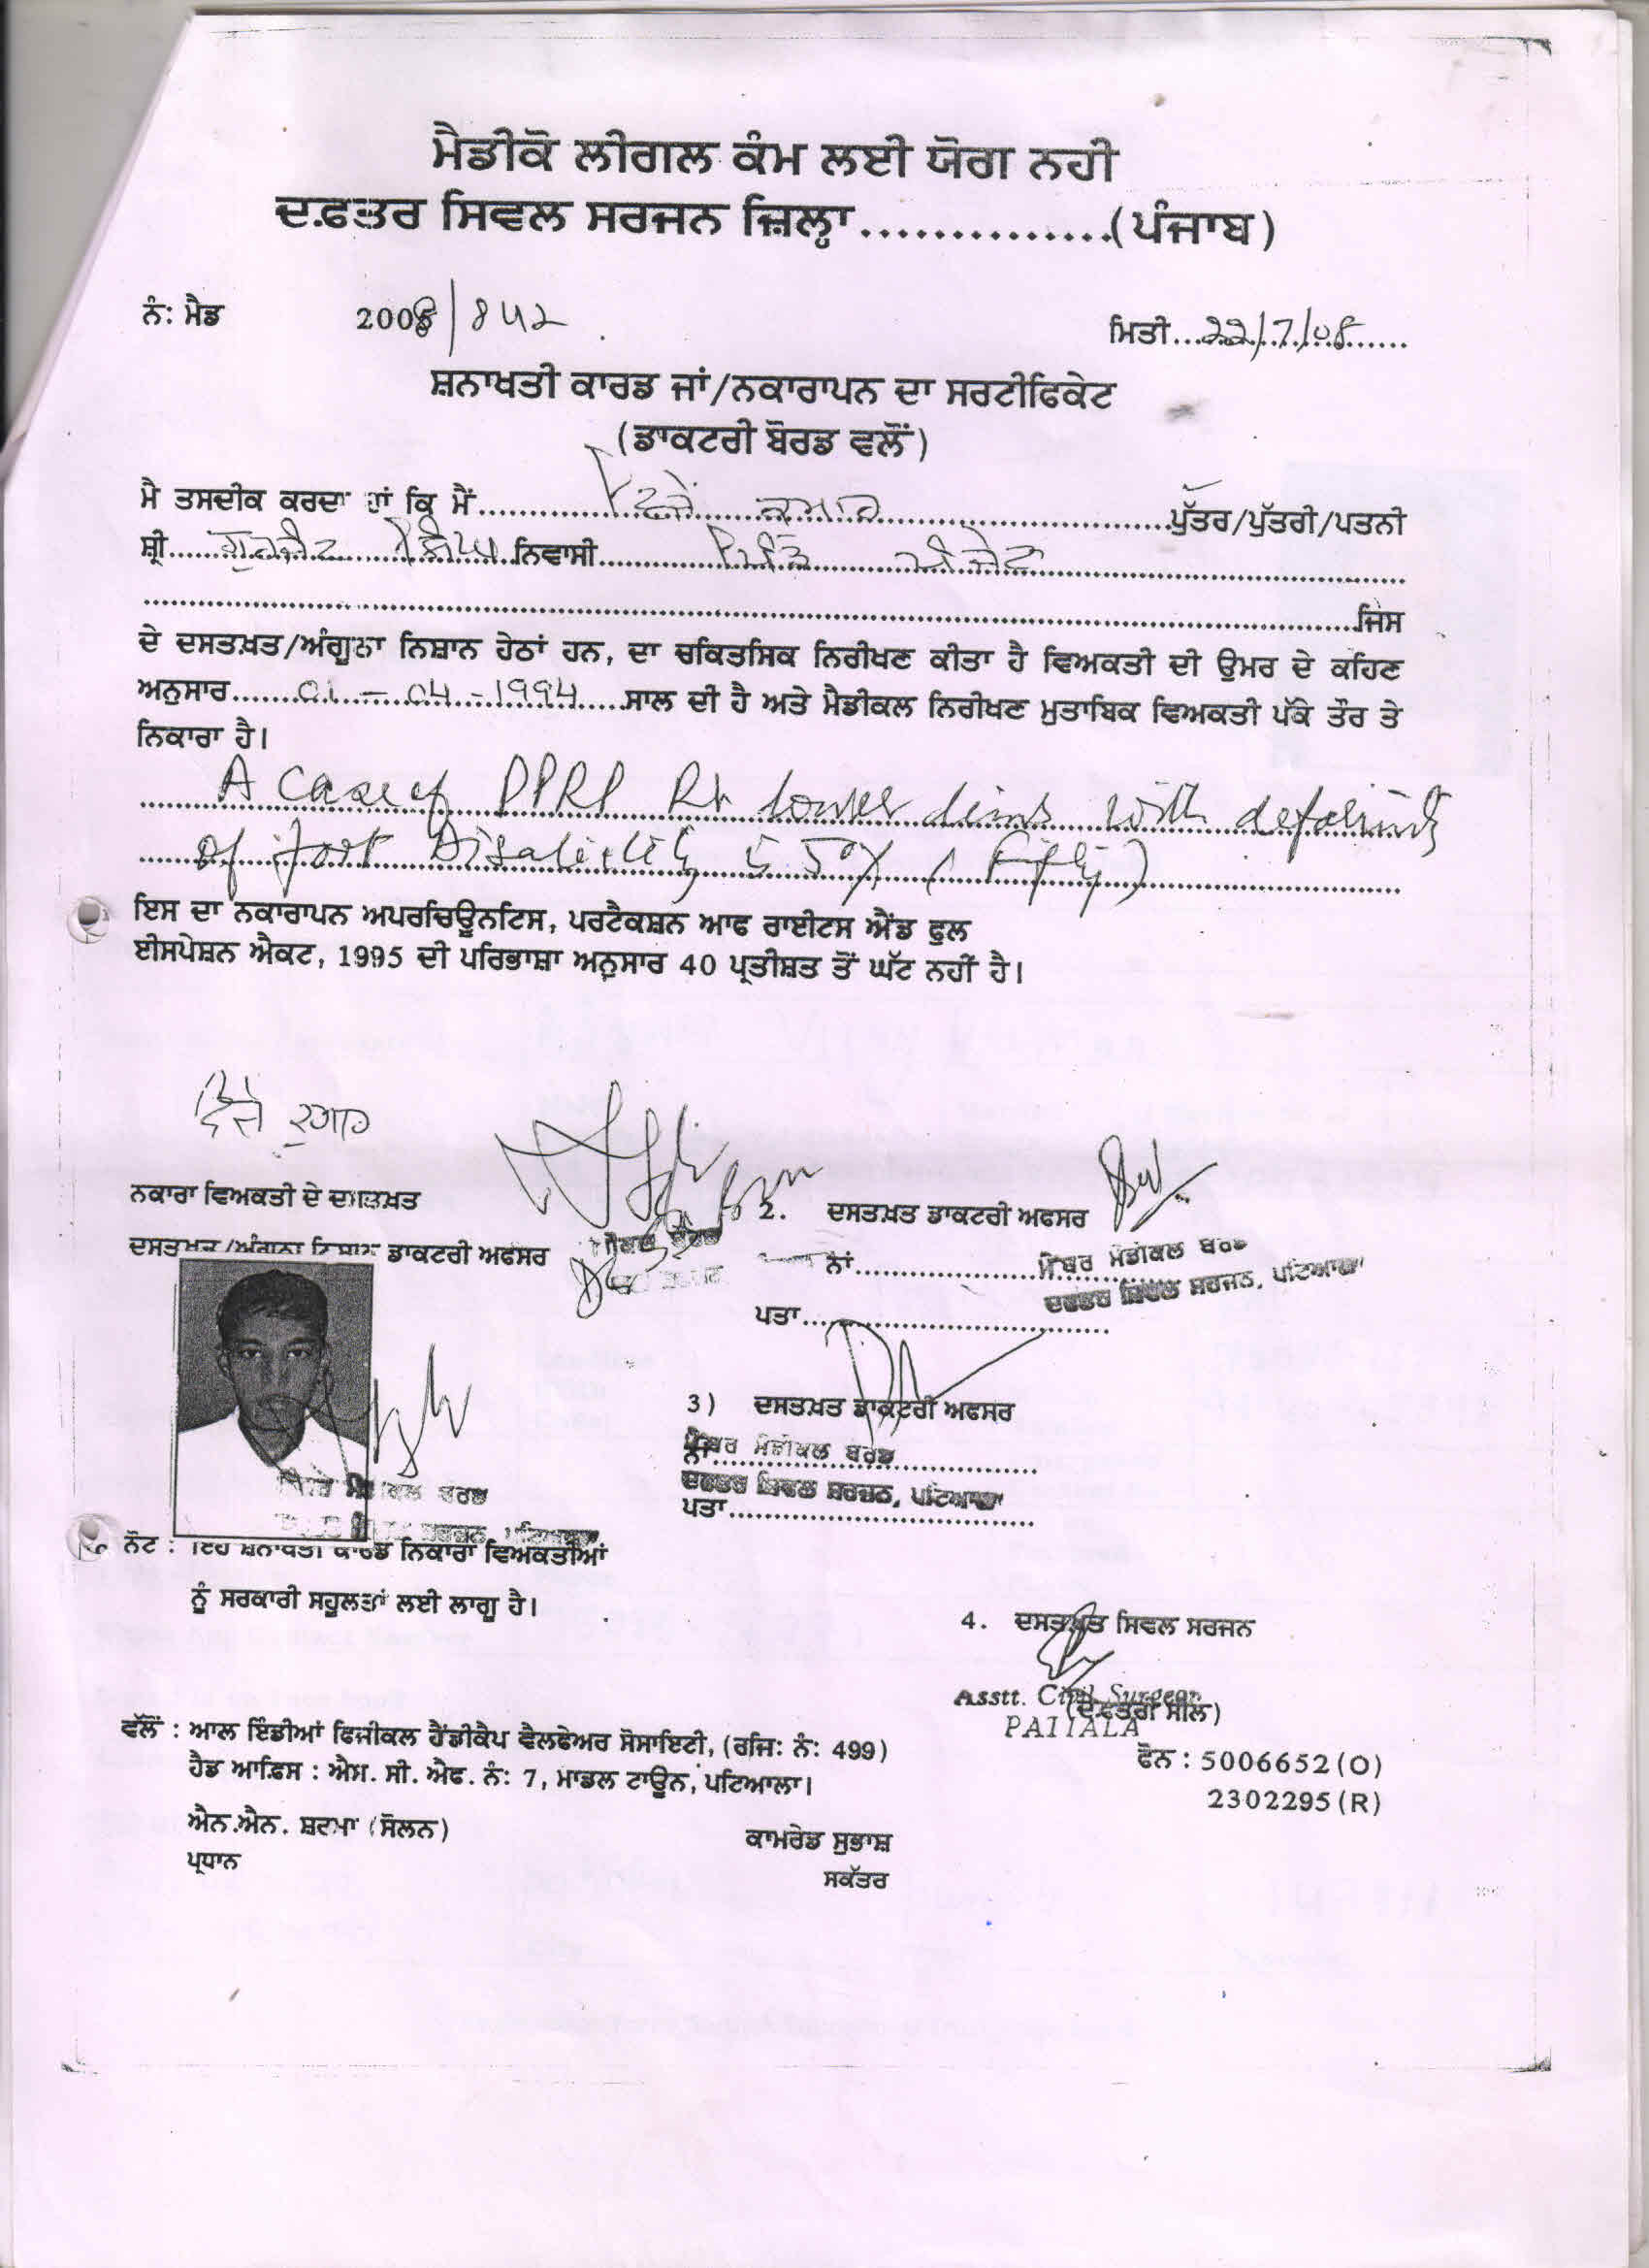 ਮੈਡੀਕੋ ਲੀਗਲ ਕੰਮ ਲਈ ਯੋਗ ਨਹੀ
ਦਫ਼ਤਰ ਸਿਵਲ ਸਰਜਨ ਜ਼ਿਲ੍ਹਾ..............(ਪੰਜਾਬ)
ਨੰ: ਮੈਡ 2008/842
ਮਿਤੀ...22/7/08......
ਸ਼ਨਾਖਤੀ ਕਾਰਡ ਜਾਂ/ਨਕਾਰਾਪਨ ਦਾ ਸਰਟੀਫਿਕੇਟ
(ਡਾਕਟਰੀ ਬੋਰਡ ਵਲੋਂ)
ਮੈ ਤਸਦੀਕ ਕਰਦਾ ਹਾਂ ਕਿ ਮੈਂ..........ਵਿਜੇ ਕੁਮਾਰ..........ਪੁੱਤਰ/ਪੁੱਤਰੀ/ਪਤਨੀ
ਸ਼੍ਰੀ.... ਸਿੰਘ ਨਿਵਾਸੀ.......... ਪਿੰਡ ..........
..........ਜਿਸ
ਦੇ ਦਸਤਖ਼ਤ/ਅੰਗੂਠਾ ਨਿਸ਼ਾਨ ਹੇਠਾਂ ਹਨ, ਦਾ ਚਕਿਤਸਿਕ ਨਿਰੀਖਣ ਕੀਤਾ ਹੈ ਵਿਅਕਤੀ ਦੀ ਉਮਰ ਦੇ ਕਹਿਣ
ਅਨੁਸਾਰ......01-04-1994.....ਸਾਲ ਦੀ ਹੈ ਅਤੇ ਮੈਡੀਕਲ ਨਿਰੀਖਣ ਮੁਤਾਬਿਕ ਵਿਅਕਤੀ ਪੱਕੇ ਤੌਰ ਤੇ
ਨਿਕਾਰਾ ਹੈ।
A case of PPRP Rt lower limb with deformity
of foot Disability 55% (Fifty)
ਇਸ ਦਾ ਨਕਾਰਾਪਨ ਅਪਰਚਿਊਨਟਿਸ, ਪਰਟੈਕਸ਼ਨ ਆਫ ਰਾਈਟਸ ਐਂਡ ਫੁਲ
ਈਸਪੇਸ਼ਨ ਐਕਟ, 1995 ਦੀ ਪਰਿਭਾਸ਼ਾ ਅਨੁਸਾਰ 40 ਪ੍ਰਤੀਸ਼ਤ ਤੋਂ ਘੱਟ ਨਹੀਂ ਹੈ।
ਵਿਜੇ ਕੁਮਾਰ
ਨਕਾਰਾ ਵਿਅਕਤੀ ਦੇ ਦਸਤਖ਼ਤ
2. ਦਸਤਖ਼ਤ ਡਾਕਟਰੀ ਅਫਸਰ
ਦਸਤਖ਼ਤ/ਅੰਗੂਠਾ ਨਿਸ਼ਾਨ ਡਾਕਟਰੀ ਅਫਸਰ
ਨਾਂ..........
ਮੈਂਬਰ ਮੈਡੀਕਲ ਬੋਰਡ
ਦਫਤਰ ਸਿਵਲ ਸਰਜਨ, ਪਟਿਆਲਾ
ਪਤਾ..........
3) ਦਸਤਖ਼ਤ ਡਾਕਟਰੀ ਅਫਸਰ
ਮੈਂਬਰ ਮੈਡੀਕਲ ਬੋਰਡ
ਨਾਂ..........
ਦਫਤਰ ਸਿਵਲ ਸਰਜਨ, ਪਟਿਆਲਾ
ਪਤਾ..........
ਮੈਡੀਕਲ ਬੋਰਡ
ਸਰਜਨ, ਪਟਿਆਲਾ
ਨੋਟ : ਇਹ ਸ਼ਨਾਖਤੀ ਕਾਰਡ ਨਿਕਾਰਾ ਵਿਅਕਤੀਆਂ
ਨੂੰ ਸਰਕਾਰੀ ਸਹੂਲਤਾਂ ਲਈ ਲਾਗੂ ਹੈ।
4. ਦਸਤਖ਼ਤ ਸਿਵਲ ਸਰਜਨ
Asstt. Civil Surgeon
(ਦਫ਼ਤਰੀ ਸੀਲ)
PATIALA
ਵੱਲੋਂ : ਆਲ ਇੰਡੀਆਂ ਫਿਜੀਕਲ ਹੈਂਡੀਕੈਪ ਵੈਲਫੇਅਰ ਸੋਸਾਇਟੀ, (ਰਜਿ: ਨੰ: 499)
ਫੋਨ : 5006652(O)
ਹੈਡ ਆਫ਼ਿਸ : ਐਸ. ਸੀ. ਐਫ. ਨੰ: 7, ਮਾਡਲ ਟਾਊਨ, ਪਟਿਆਲਾ।
2302295(R)
ਐਨ.ਐਨ. ਸ਼ਰਮਾ (ਸੋਲਨ)
ਕਾਮਰੇਡ ਸੁਭਾਸ਼
ਪ੍ਰਧਾਨ
ਸਕੱਤਰ